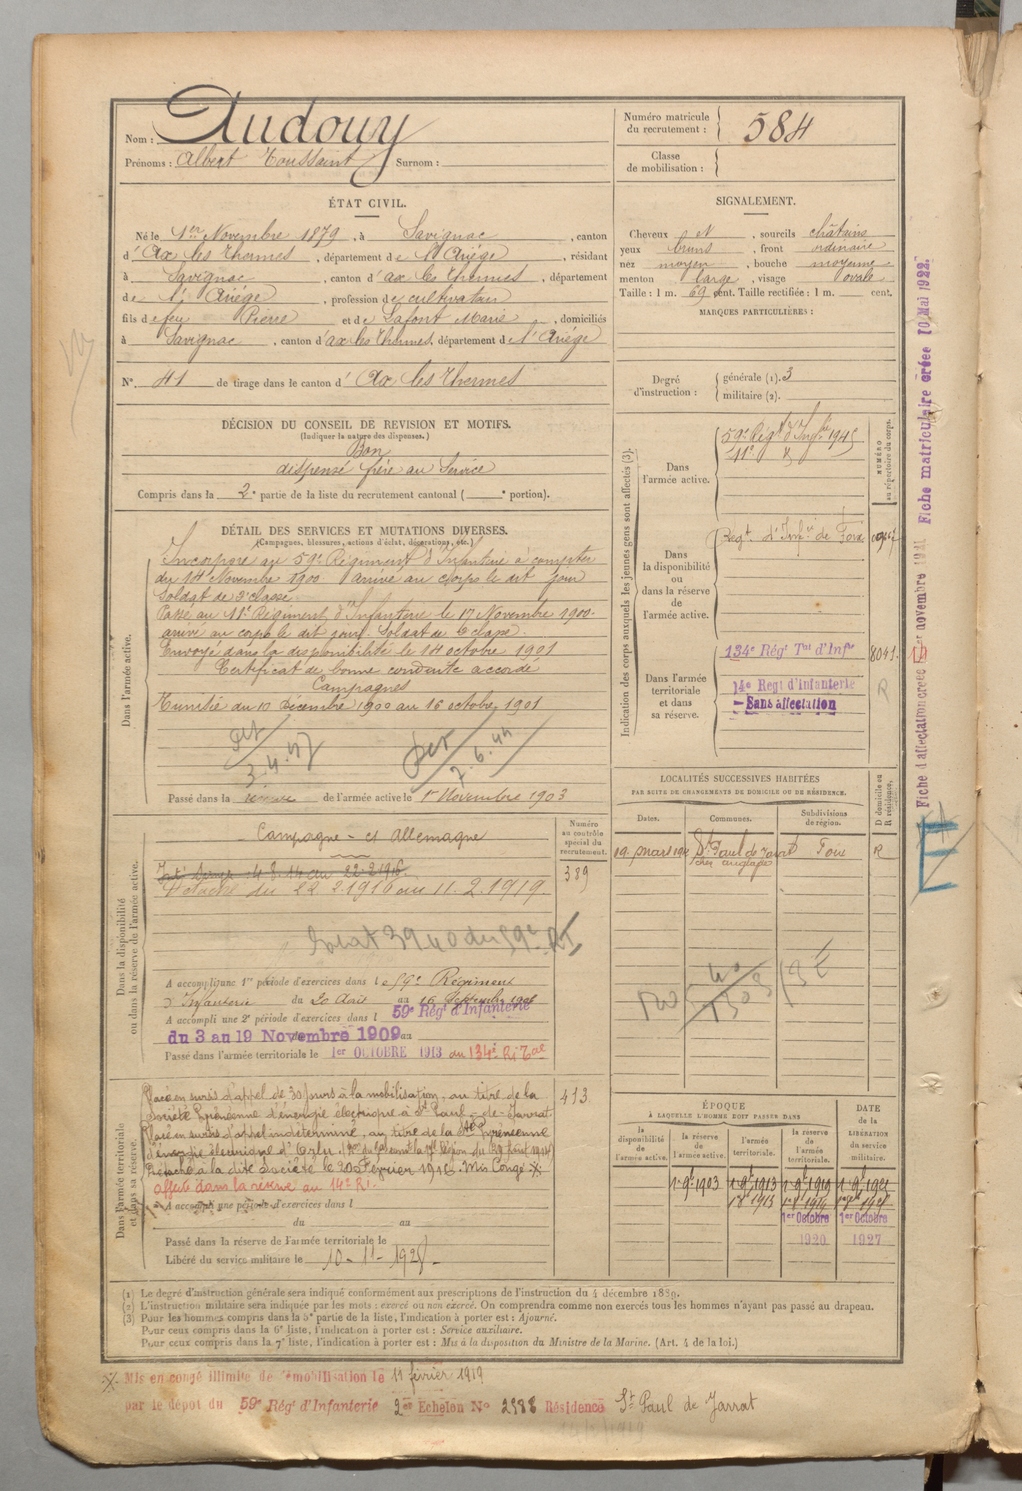 Nom : Audouy
Prénoms : Albert Toussaint Surnom :
Numéro matricule du recrutement : 584
Classe de mobilisation :
ÉTAT CIVIL.
Né le 1er Novembre 1879, à Savignac, canton
d'Ax les Thermes, département de l'Ariège, résidant
à Savignac, canton d'ax les Thermes, département
de l'Ariège, profession de cultivateur
fils de feu Pierre et de Lafont Marie, domiciliés
à Savignac, canton d'ax les Thermes, département de l'Ariège
N° 41 de tirage dans le canton d'Ax les Thermes
SIGNALEMENT.
Cheveux et, sourcils châtains
yeux bruns, front ordinaire
nez moyen, bouche moyenne
menton large, visage ovale
Taille : 1 m. 69 cent. Taille rectifiée : 1 m. cent.
MARQUES PARTICULIÈRES :
Degré d'instruction : générale (1). 3
militaire (2).
DÉCISION DU CONSEIL DE REVISION ET MOTIFS.
(Indiquer la nature des dispenses.)
Bon
dispensé frère au Service
Compris dans la 2e partie de la liste du recrutement cantonal ( e portion).
DÉTAIL DES SERVICES ET MUTATIONS DIVERSES.
(Campagnes, blessures, actions d'éclat, décorations, etc.)
Dans l'armée active.
Incorporé au 59e Régiment d'Infanterie à compter
du 14 Novembre 1900 arrivé au corps le dit jour
Soldat de 2e classe
Passé au 11e Régiment d'Infanterie le 17 Novembre 1900.
arrivé au corps le dit jour. Soldat de 2e classe.
Envoyé dans la disponibilité le 14 octobre 1901
Certificat de bonne conduite accordé
Campagnes
Tunisie du 10 décembre 1900 au 16 octobre 1901
3.4.47
7.6.44
Passé dans la réserve de l'armée active le 1er Novembre 1903
Indication des corps auxquels les jeunes gens sont affectés (3).
NUMÉRO au répertoire du corps.
Dans l'armée active.
59e Régt d'Infie 1945
11e
Dans la disponibilité ou dans la réserve de l'armée active.
Regt. d'Infie de Foix
Dans l'armée territoriale et dans sa réserve.
134e Régt Tal d'Infie 8041
14e Regt d'Infanterie R
Sans affectation
Fiche d'affectation créée 1er novembre 1921 Fiche matriculaire créée 10 Mai 1922.
LOCALITÉS SUCCESSIVES HABITÉES
PAR SUITE DE CHANGEMENTS DE DOMICILE OU DE RÉSIDENCE.
Dates. Communes. Subdivisions de région. D domicile ou R résidence.
19 mars 1912 St Paul de Jarrat Foix R
Dans la disponibilité ou dans la réserve de l'armée active.
Numéro au contrôle spécial du recrutement.
389
Campagne - ct Allemagne
Détaché du 22.2.1916 au 11.2.1919
A accompli une 1re période d'exercices dans le 59e Régiment
d'Infanterie du 20 Août au 16 Septembre 1906
A accompli une 2e période d'exercices dans le 59e Régt d'Infanterie
du 3 au 19 Novembre 1909
Passé dans l'armée territoriale le 1er OCTOBRE 1913 au 134e Ri Tal
Dans l'armée territoriale et dans sa réserve.
413.
Placé en sursis d'appel de 30 jours à la mobilisation, au titre de la
Société Pyrénéenne d'énergie électrique à St Paul-de-Jarrat
Placé en sursis d'appel indéterminé, au titre de la Sté Pyrénéenne
d'énergie électrique d'Orlu.
Détaché à la dite Société le 22 Février 1916. Mis Congé X
Affecté dans la réserve au 14e R.I.
A accompli une période d'exercices dans l
du au
Passé dans la réserve de l'armée territoriale le
Libéré du service militaire le 10-11-1928
ÉPOQUE
À LAQUELLE L'HOMME DOIT PASSER DANS
DATE de la LIBÉRATION du service militaire.
la disponibilité de l'armée active. la réserve de l'armée active. l'armée territoriale. la réserve de l'armée territoriale.
1er Octobre 1er Octobre
1920 1927
(1) Le degré d'instruction générale sera indiqué conformément aux prescriptions de l'instruction du 4 décembre 1889.
(2) L'instruction militaire sera indiquée par les mots : exercé ou non exercé. On comprendra comme non exercés tous les hommes n'ayant pas passé au drapeau.
(3) Pour les hommes compris dans la 5e partie de la liste, l'indication à porter est : Ajourné.
Pour ceux compris dans la 6e liste, l'indication à porter est : Service auxiliaire.
Pour ceux compris dans la 7e liste, l'indication à porter est : Mis à la disposition du Ministre de la Marine. (Art. 4 de la loi.)
X. Mis en congé illimité de démobilisation le 11 février 1919
par le dépôt du 59e Régt d'Infanterie 2me Echelon No 2988 Résidence St Paul de Jarrat